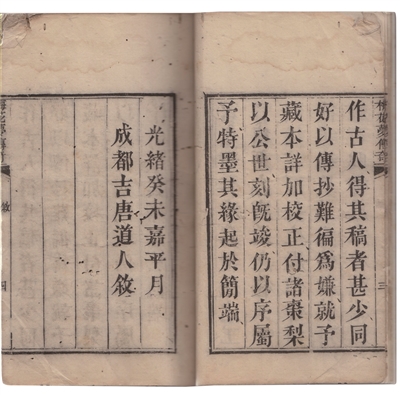 梅花夢傳奇
三
作古人得其稿者甚少同
好以傳抄難徧爲嫌就予
藏本詳加校正付諸棗梨
以公世刻旣竣仍以序屬
予特墨其緣起於簡端
光緒癸未嘉平月
成都吉唐道人敘
四